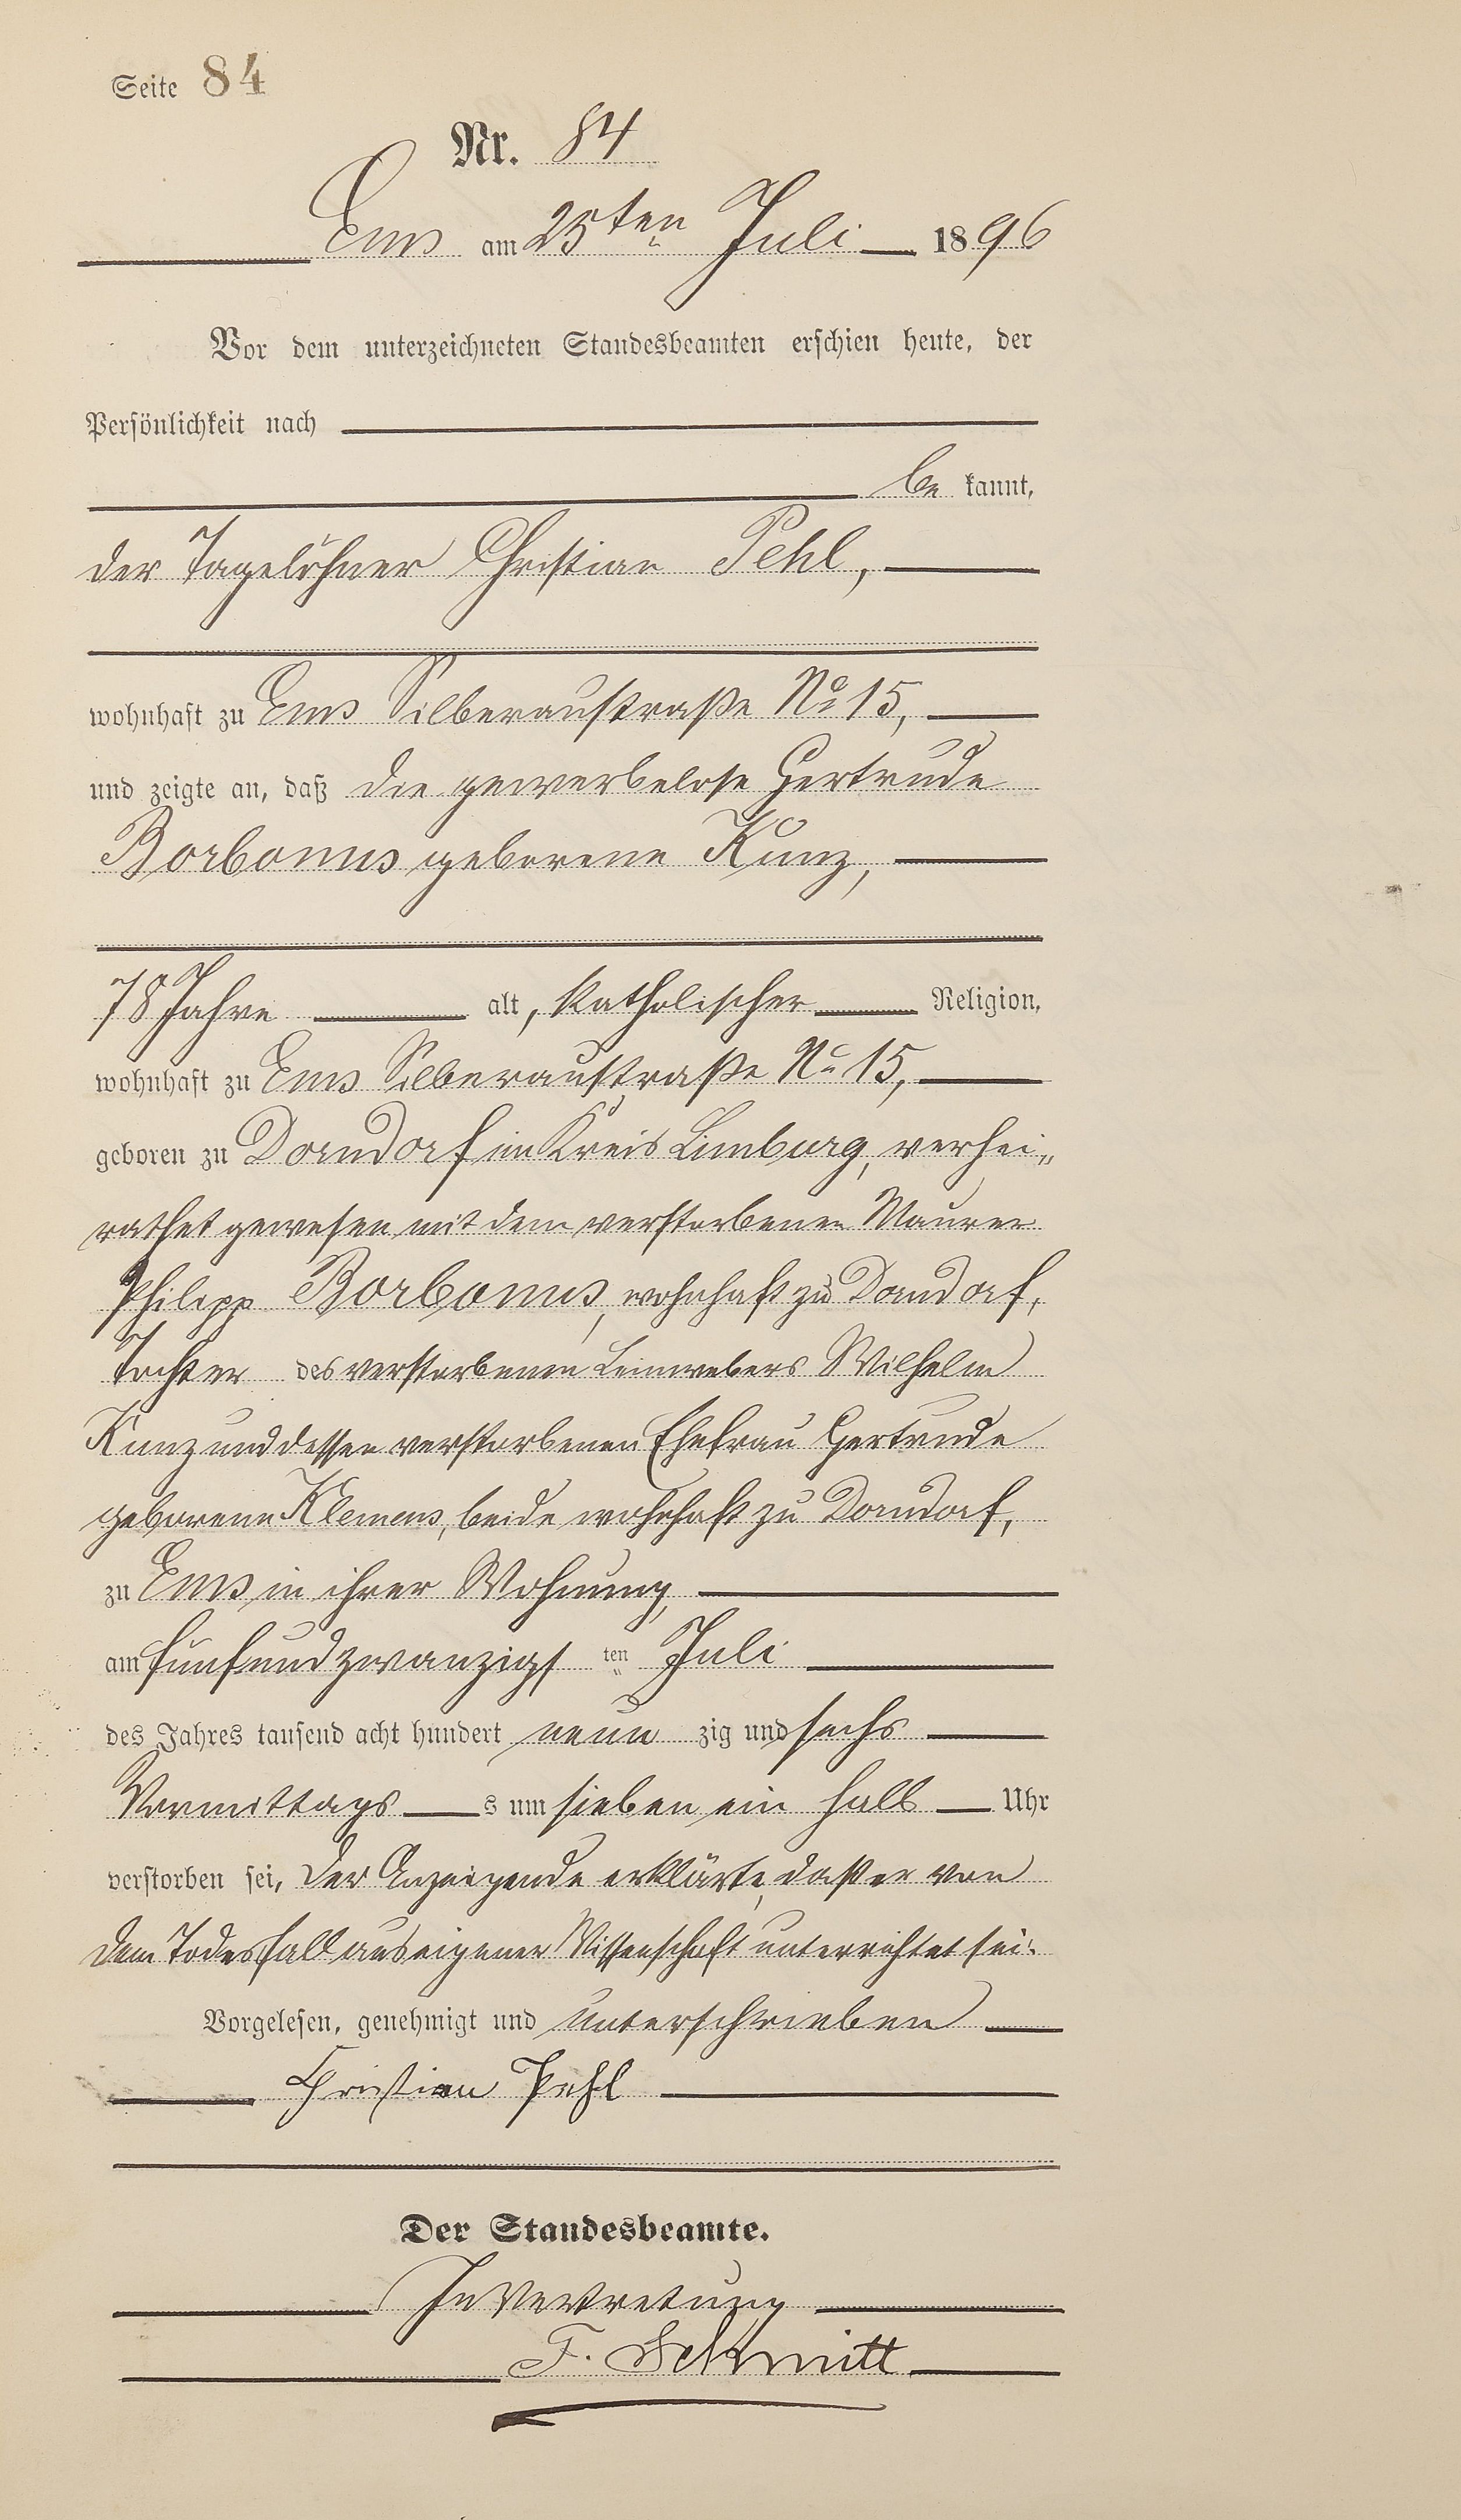 Seite 84
Nr. 84
Ems am 25ten Juli 1896
Vor dem unterzeichneten Standesbeamten erschien heute, der
Persönlichkeit nach
be kannt,
der Tagelöhner Christian Pehl,
wohnhaft zu Ems Silberaustraße No 15,
und zeigte an, daß die gewerbelose Gertrude
Borbonus geborene Kunz,
78 Jahre alt, katholischer Religion,
wohnhaft zu Ems Silberaustraße No 15,
geboren zu Dorndorf im Kreis Limburg, verhei„
rathet gewesen mit dem verstorbenen Maurer
Philipp Borbonus, wohnhaft zu Dorndorf,
Tochter des verstorbenen Leinwebers Wilhelm
Kunz und dessen verstorbenen Ehefrau Gertrude
geborene Klemens, beide wohnhaft zu Dorndorf,
zu Ems in ihrer Wohnung,
am fünfundzwanzigs ten Juli
des Jahres tausend acht hundert neun zig und sechs
Vormittags s um sieben ein halb Uhr
verstorben sei, Der Anzeigende erklärte, daß er von
dem Todesfall aus eigener Wissenschaft unterrichtet sei.
Vorgelesen, genehmigt und unterschrieben
Christian Pehl
Der Standesbeamte.
In Vertretung
F. Schmitt